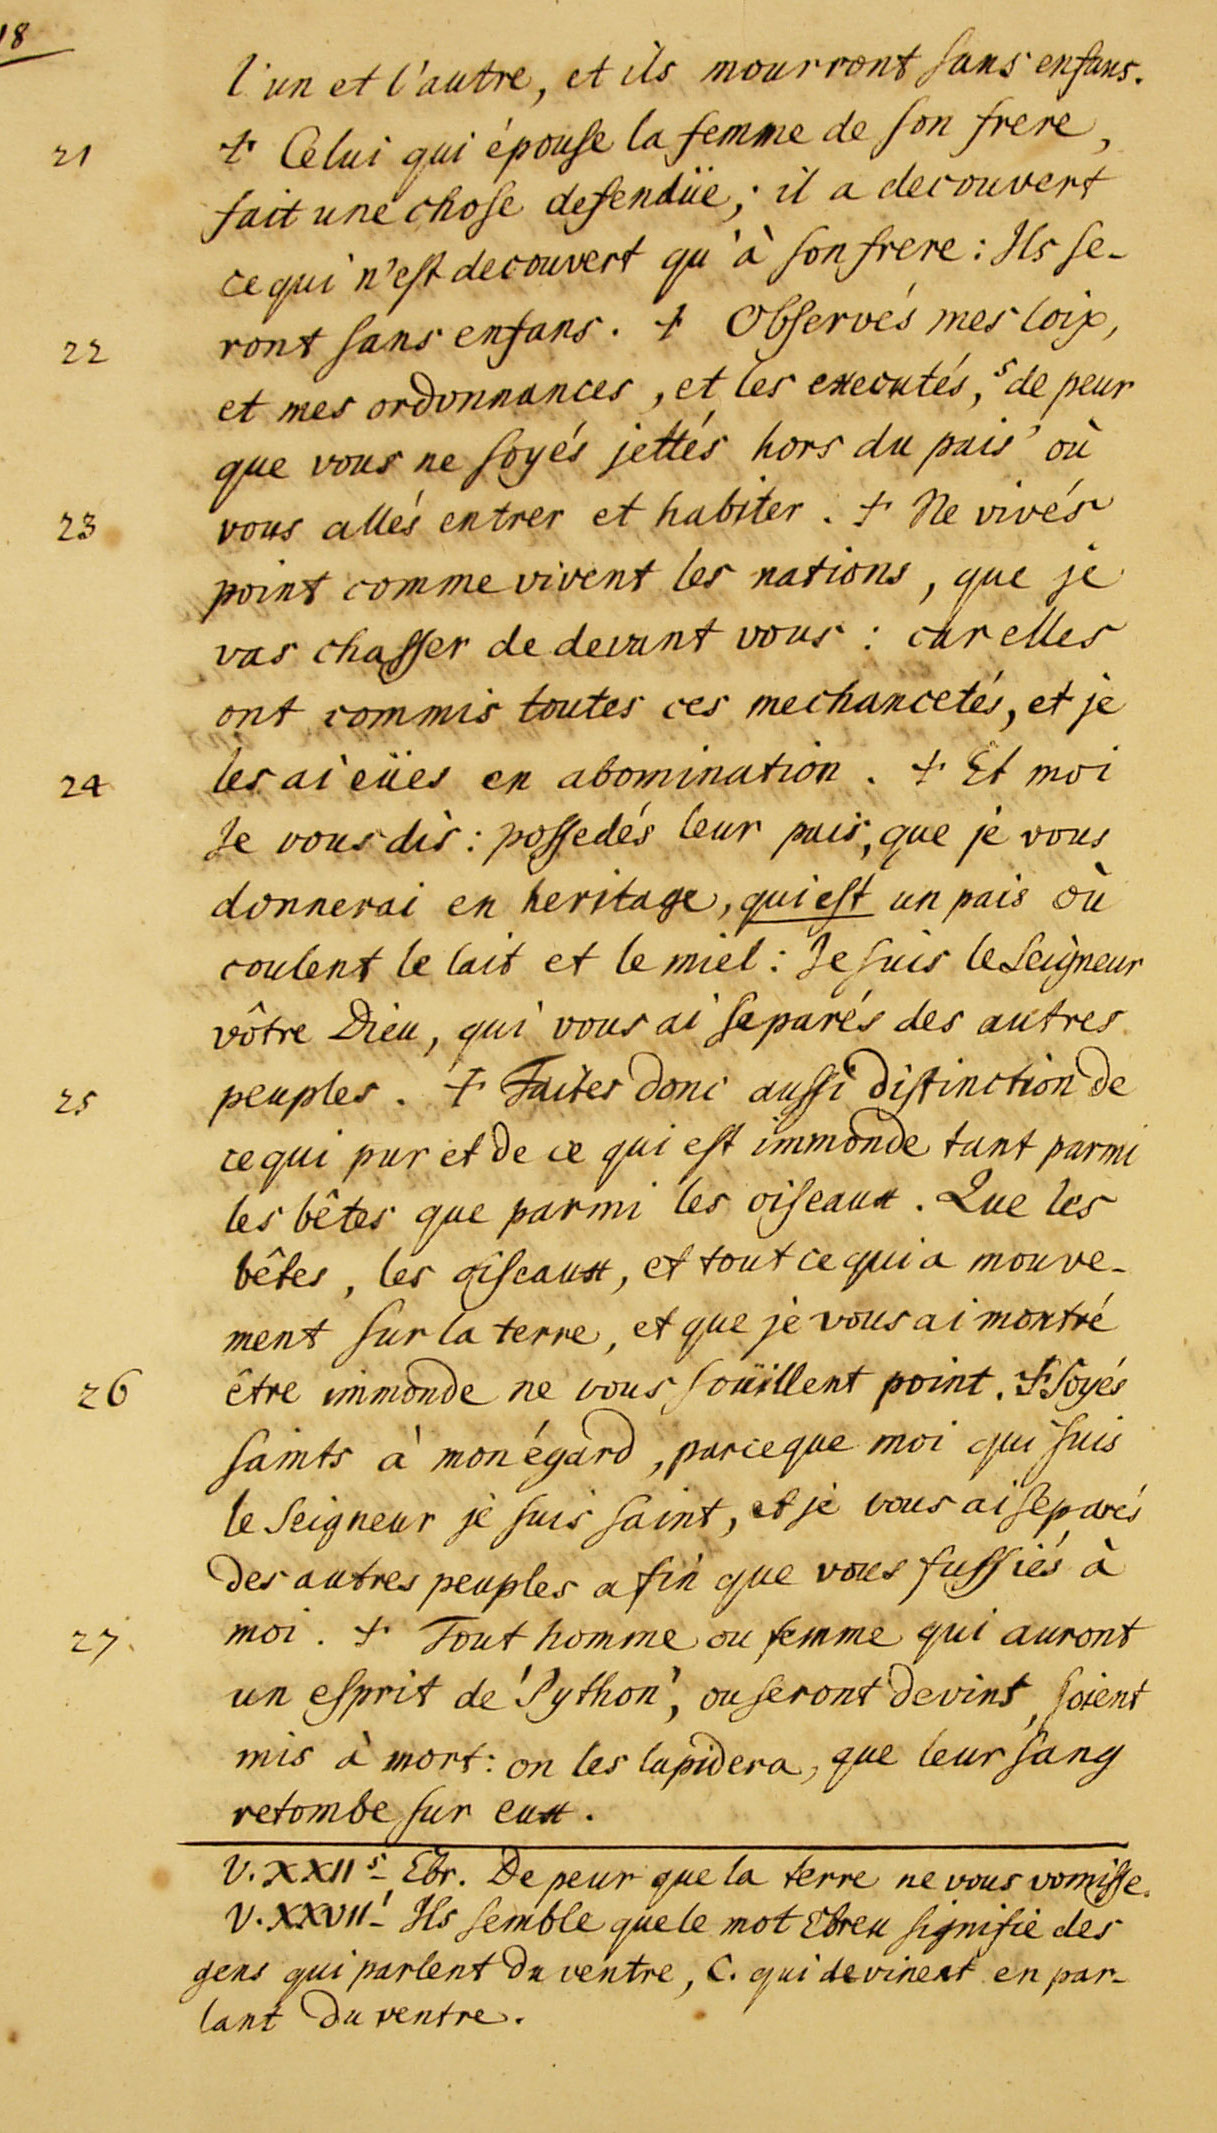 18
l'un et l'autre, et ils mourront sans enfans.
21 ☩ Celui qui épouse la femme de son frere,
fait une chose defendüe; il a decouvert
ce qui n'est decouvert qu'à son frere: Ils se-
22 ront sans enfans. ☩ Observés mes loix,
et mes ordonnances, et les executés, ˢ de peur
que vous ne soyés jettés hors du pais où
23 vous allés entrer et habiter. ☩ Ne vivés
point comme vivent les nations, que je
vas chasser de devant vous: car elles
ont commis toutes ces mechancetés, et je
24 les ai eües en abomination. ☩ Et moi
Je vous dis: possedés leur pais, que je vous
donnerai en heritage, qui est un pais où
coulent le lait et le miel: Je suis le Seigneur
vôtre Dieu, qui vous ai separés des autres
25 peuples. ☩ Faites donc aussi distinction de
ce qui pur et de ce qui est immonde tant parmi
les bêtes que parmi les oiseaux. Que les
bêtes, les oiseaux, et tout ce qui a mouve-
ment sur la terre, et que je vous ai montré
26 être immonde ne vous souillent point. ☩ Soyés
saints à mon égard, parceque moi qui suis
le Seigneur je suis saint, et je vous ai separés
des autres peuples afin que vous fussiés à
27 moi. ☩ Tout homme ou femme qui auront
un esprit de ' Python', ou seront devins, soient
mis à mort: on les lapidera, que leur sang
retombe sur eux.
V. XXII ˢ- Ebr. De peur que la terre ne vous vomisse.
V. XXVII'- Ils semble que le mot Ebreu signifie des
gens qui parlent du ventre, C. qui devinent en par-
lant du ventre.